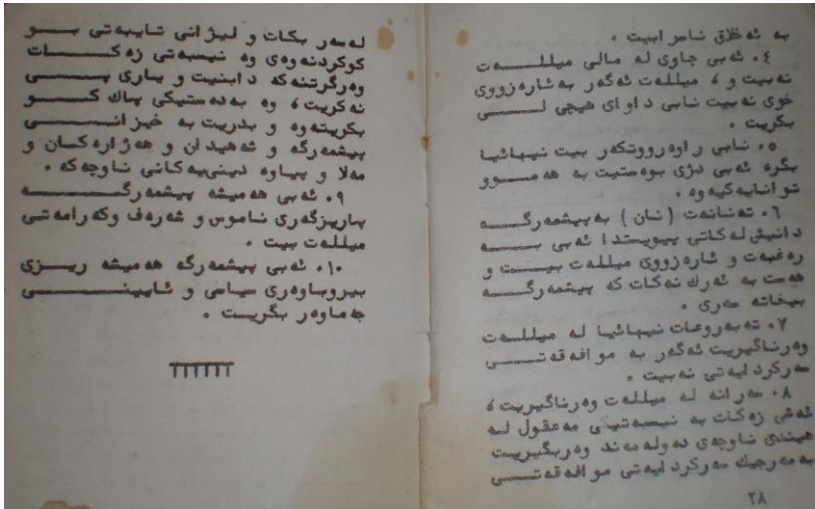 به ئه‌خلاق ناسرابیت .
٤. ئه‌بی چاوی له مالی میللـــه‌ت
نه‌بیت و ، میلله‌ت ئه‌گه‌ر به‌ئاره‌زووی
خوی نه‌بیت نابی داوای هیچی لــی
بکریت .
٥. نابی راوه‌رووتکه‌ر بیت نیهائیا
بگره ئه‌بی دژی بوه‌ستیت به هه‌مــوو
توانایه‌کیه‌وه .
٦. ته‌نانه‌ت ( نان ) به‌پیشمه‌رگــه
دانیش له‌کاتی پیویستدا ئه‌بی بـــه
ره‌غبه‌ت و ئاره‌زووی میلله‌ت بیـــت و
هه‌ست به ئه‌رك نه‌کات که پیشمه‌رگـــه
بیخاته سه‌ری .
٧. ته‌به‌روعات نیهائیا له میللـــه‌ت
وه‌رناگیریت ئه‌گه‌ر به موافه‌قه‌تـــی
سه‌رکردایه‌تی نه‌بیت .
٨. سه‌رانه له میلله‌ت وه‌رناگیریت ،
ئه‌شی زه‌کات به نیسبه‌تیکی مه‌عقول لــه
هیندی ناوچه‌ی ده‌وله‌مه‌ند وه‌ربگیریت
به مه‌رجیك سه‌رکردایه‌تی موافه‌قه‌تـــی
٢٨
له‌سه‌ر بکات و لیژنی تایبه‌تی بـــو
کوکردنه‌وه‌ی وه نیسبه‌تی زه‌کـــات
وه‌رگرتنه‌که دابنیت و یاری پـــی
نه‌کریت ، وه به‌ده‌ستیکی پاك کـــو
بکریته‌وه و بدریت به خیزانـــی
پیشمه‌رگه و شه‌هیدان و هه‌ژاره‌کان و
مه‌لا و پیاوه دینی‌یه‌کانی ناوچه‌که .
٩. ئه‌بی هه‌میشه پیشمه‌رگـــه
پاریزگه‌ری ناموس و شه‌ره‌ف وکه‌رامه‌تی
میلله‌ت بیت .
١٠. ئه‌بی پیشمه‌رگه هه‌میشه ریـــزی
بیروباوه‌ری سیاسی و ئایینـــی
جه‌ماوه‌ر بگریـــت .